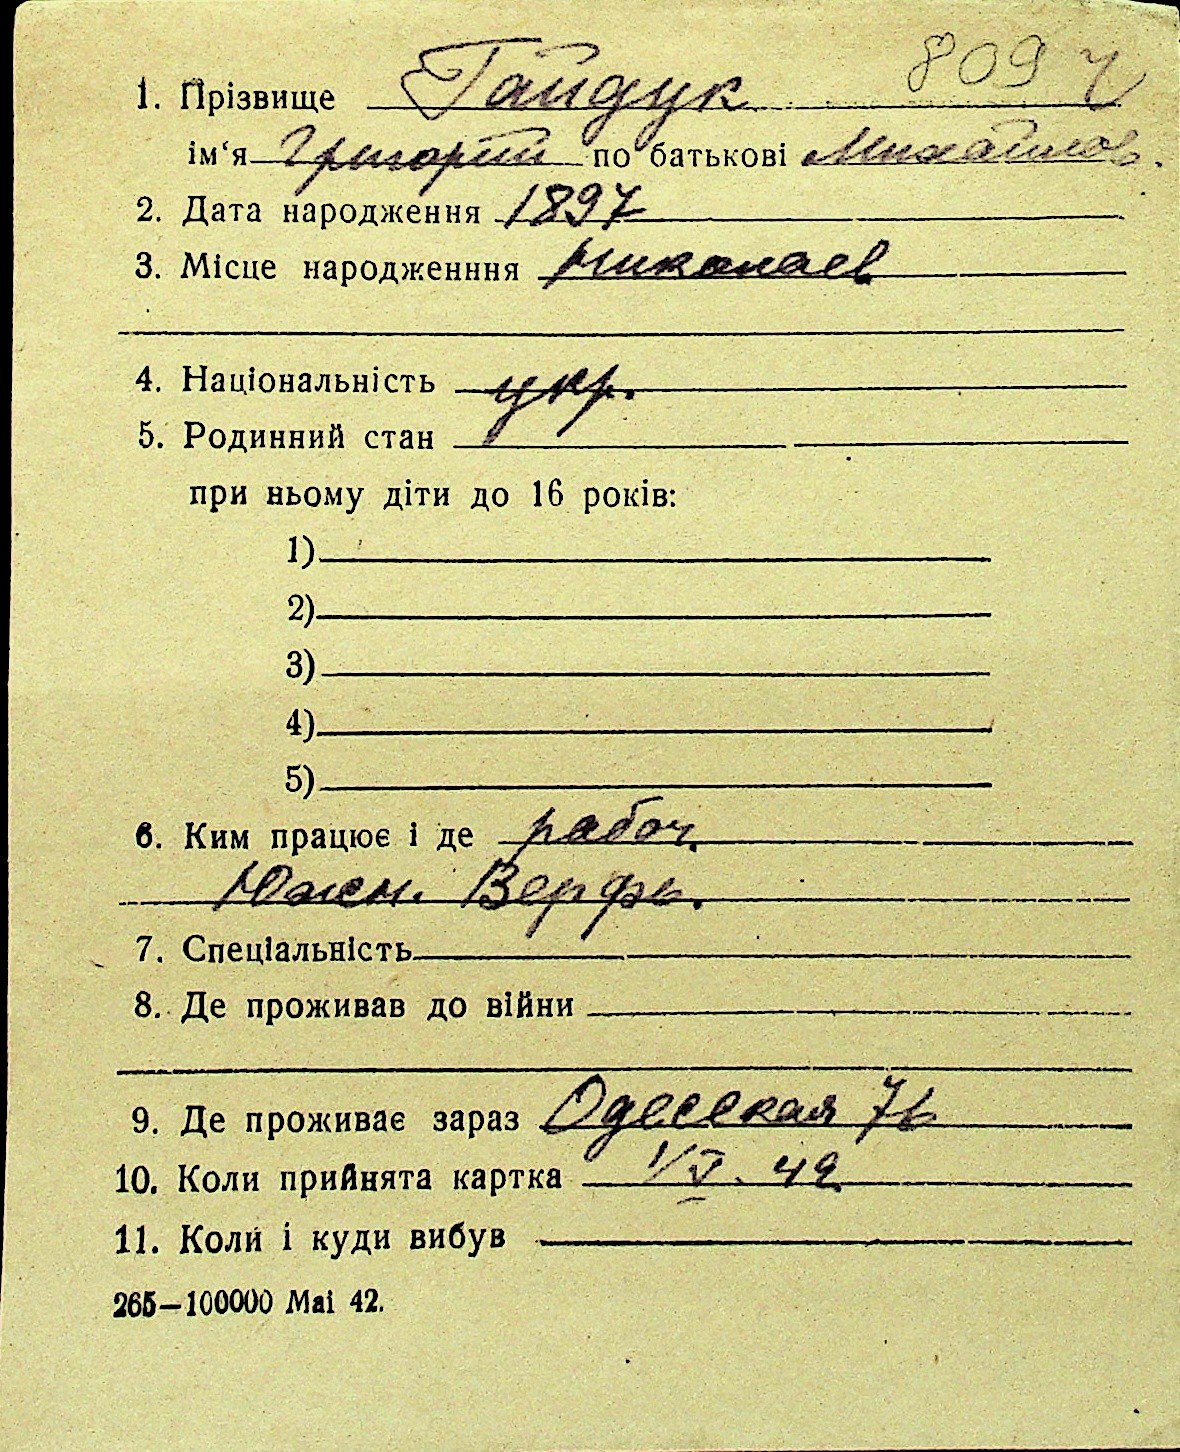 809 ч
1. Прізвище Гайдук
ім‘я Григорий по батькові Михайлов.
2. Дата народження 1897
3. Місце народженння Николаев
4. Національність укр.
5. Родинний стан
при ньому діти до 16 років:
1)
2)
3)
4)
5)
6. Ким працює і де рабоч.
Южн. Верфь.
7. Спеціальність
8. Де проживав до війни
9. Де проживає зараз Одесская 76
10. Коли прийнята картка 1/V. 42
11. Коли і куди вибув
265—100000 Маі 42.